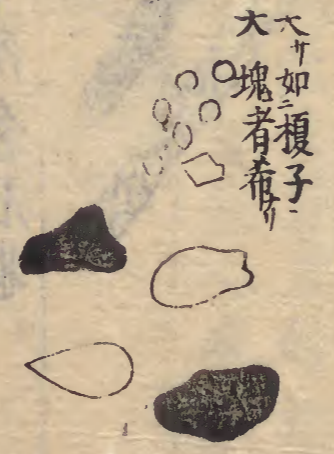 大サ如ニ榎子ニ
大塊者希ナリ